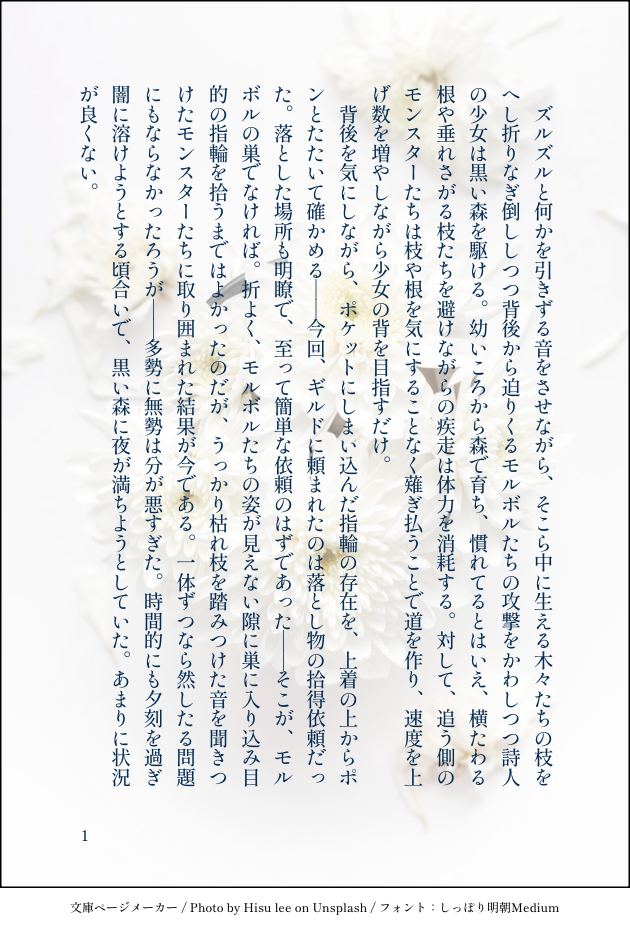 ズルズルと何かを引きずる音をさせながら、そこら中に生える木々たちの枝を
へし折りなぎ倒ししつつ背後から迫りくるモルボルたちの攻撃をかわしつつ詩人
の少女は黒い森を駆ける。幼いころから森で育ち、慣れてるとはいえ、横たわる
根や垂れさがる枝たちを避けながらの疾走は体力を消耗する。対して、追う側の
モンスターたちは枝や根を気にすることなく薙ぎ払うことで道を作り、速度を上
げ数を増やしながら少女の背を目指すだけ。
背後を気にしながら、ポケットにしまい込んだ指輪の存在を、上着の上からポ
ンとたたいて確かめる――今回、ギルドに頼まれたのは落とし物の拾得依頼だっ
た。落とした場所も明瞭で、至って簡単な依頼のはずであった――そこが、モル
ボルの巣でなければ。折よく、モルボルたちの姿が見えない隙に巣に入り込み目
的の指輪を拾うまではよかったのだが、うっかり枯れ枝を踏みつけた音を聞きつ
けたモンスターたちに取り囲まれた結果が今である。一体ずつなら然したる問題
にもならなかったろうが――多勢に無勢は分が悪すぎた。時間的にも夕刻を過ぎ
闇に溶けようとする頃合いで、黒い森に夜が満ちようとしていた。あまりに状況
が良くない。
1
文庫ページメーカー / Photo by Hisu lee on Unsplash / フォント：しっぽり明朝Medium